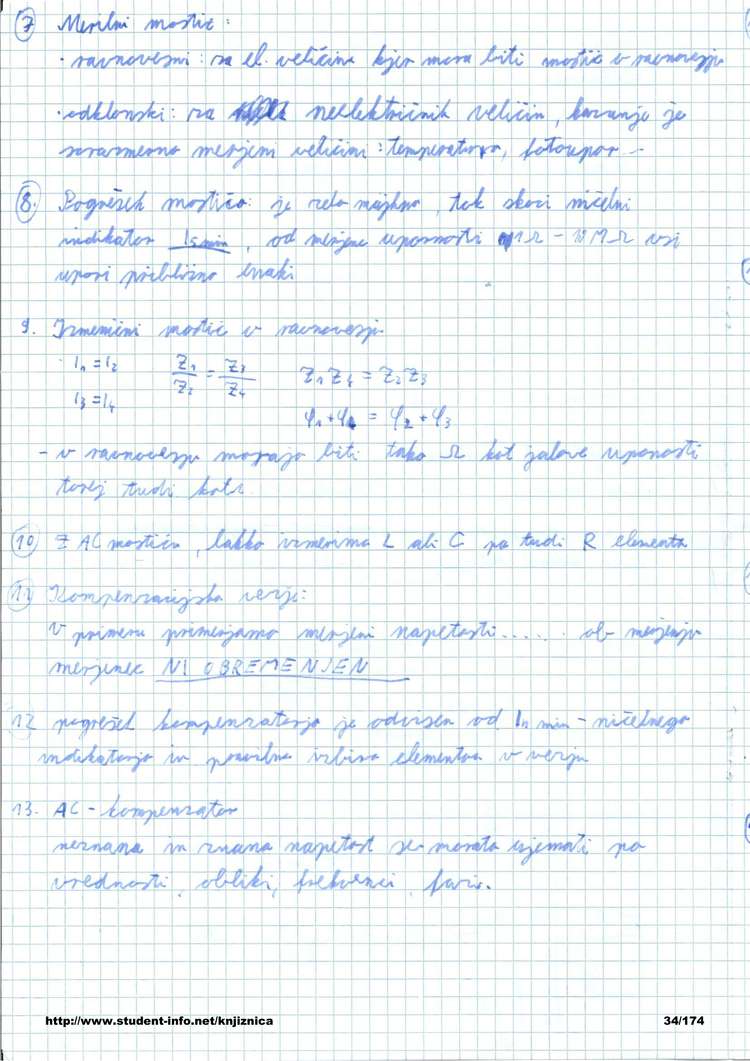 7 Merilni mostič:
· ravnovesni: za el. veličine kjer mora biti mostič v ravnovesju
· odklonski: za neelektričnih veličin, kazanje je
sorazmerno merjeni veličini: temperatura, fotoupor
8. Pogrešek mostiča: je zelo majhna, tok skozi ničelni
indikator I5min, od merjene upornosti 1Ω - 1MΩ vsi
upori približno enaki
9. Izmenični mostič v ravnovesju
I1 = I2 Z1/Z2 = Z3/Z4 Z1Z4 = Z2Z3
I3 = I4 φ1 + φ4 = φ2 + φ3
- v ravnovesju morajo biti tako Ω kot jalove uponosti
torej tudi koti
10 Z AC mostiču, lahko izmerimo L ali C pa tudi R elementa
11 Kompenzacijsko vezje:
V primeru primerjamo merjeni napetosti..... ob merjenju
merjenec NI OBREMENJEN
12 pogrešek kompenzatorja je odvisen od In min - ničelnega
indikatorja in pravilne izbire elementov v vezju
13. AC - kompenzator
neznana in znana napetost se morata ujemati po
vrednosti, obliki, frekvenci, fazi.
http://www.student-info.net/knjiznica 34/174